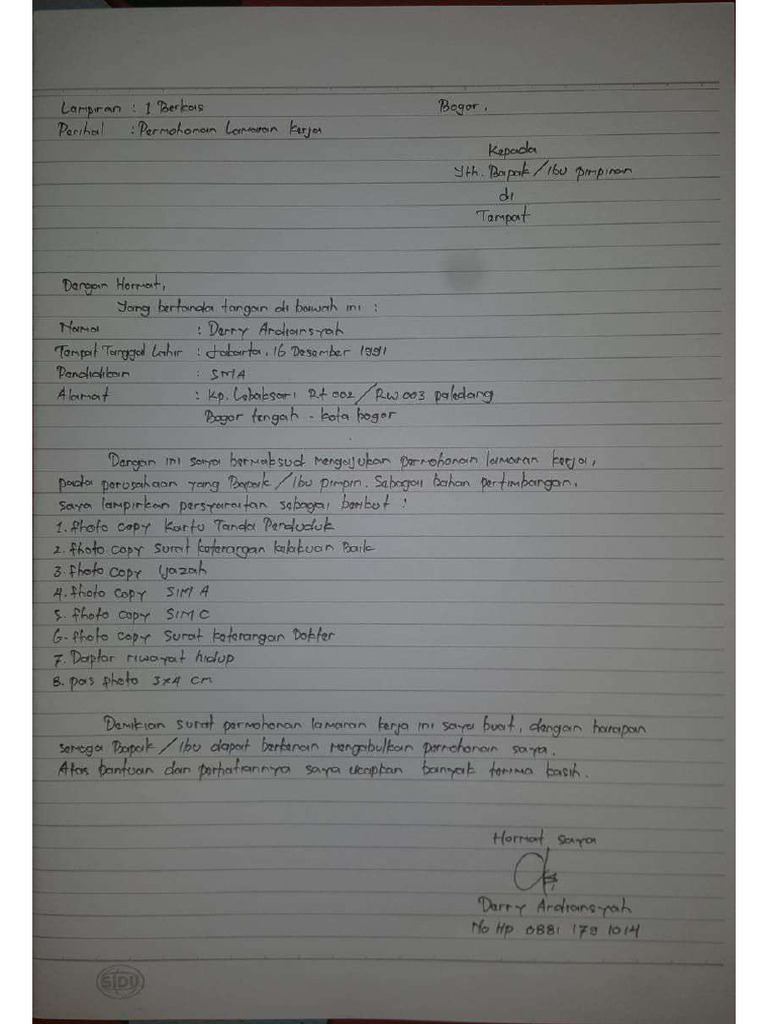 Lampiran : 1 Berkas
Bogor.
Perihal : Permohonan Lamaran Kerja
Kepada
Yth. Bapak/Ibu pimpinan
di
Tampat
Dengan Hormat,
Yang bertanda tangan di bawah ini :
Nama : Derry Ardiansyah
Tampat Tanggal Lahir : Jakarta, 16 Desember 1991
Pendidikan : SMA
Alamat : Kp. Lebaksari Rt 002/RW 003 paledang
Bogor tengah - kota bogor
Dengan ini saya bermaksud mengajukan permohonan lamaran kerja,
pada perusahaan yang Bapak/Ibu pimpin. Sebagai bahan pertimbangan,
saya lampirkan persyaratan sebagai berikut :
1. Photo copy Kartu Tanda Penduduk
2. Photo copy Surat keterangan kelakuan Baik
3. Photo copy Ijazah
4. Photo copy SIM A
5. Photo copy SIM C
6. Photo copy Surat keterangan Dokter
7. Daptar riwayat hidup
8. pas photo 3x4 cm
Demikian surat permohonan lamaran kerja ini saya buat, dengan harapan
semoga Bapak/Ibu dapat berkenan mengabulkan permohonan saya.
Atas bantuan dan perhatiannya saya ucapkan banyak terima kasih.
Hormat saya
Derry Ardiansyah
No Hp 0881 179 1014
SIDU